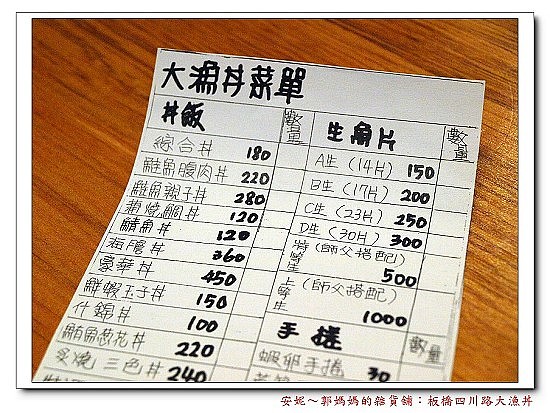 大漁丼菜單
丼飯 數量
綜合丼 180
鮭魚腹肉丼 220
鮭魚親子丼 280
鯛燒鯛丼 120
鯖魚丼 120
海膽丼 360
豪華丼 450
鮮蝦玉子丼 150
什錦丼 100
鮪魚蔥花丼 220
炙燒三色丼 240
生魚片 數量
A生(14片) 150
B生(17片) 200
C生(23片) 250
D生(30片) 300
特等生(師父搭配) 500
上等生(師父搭配) 1000
手捲 數量
蝦卵手捲 30
安妮～郭媽媽的雜貨舖：板橋四川路大漁丼